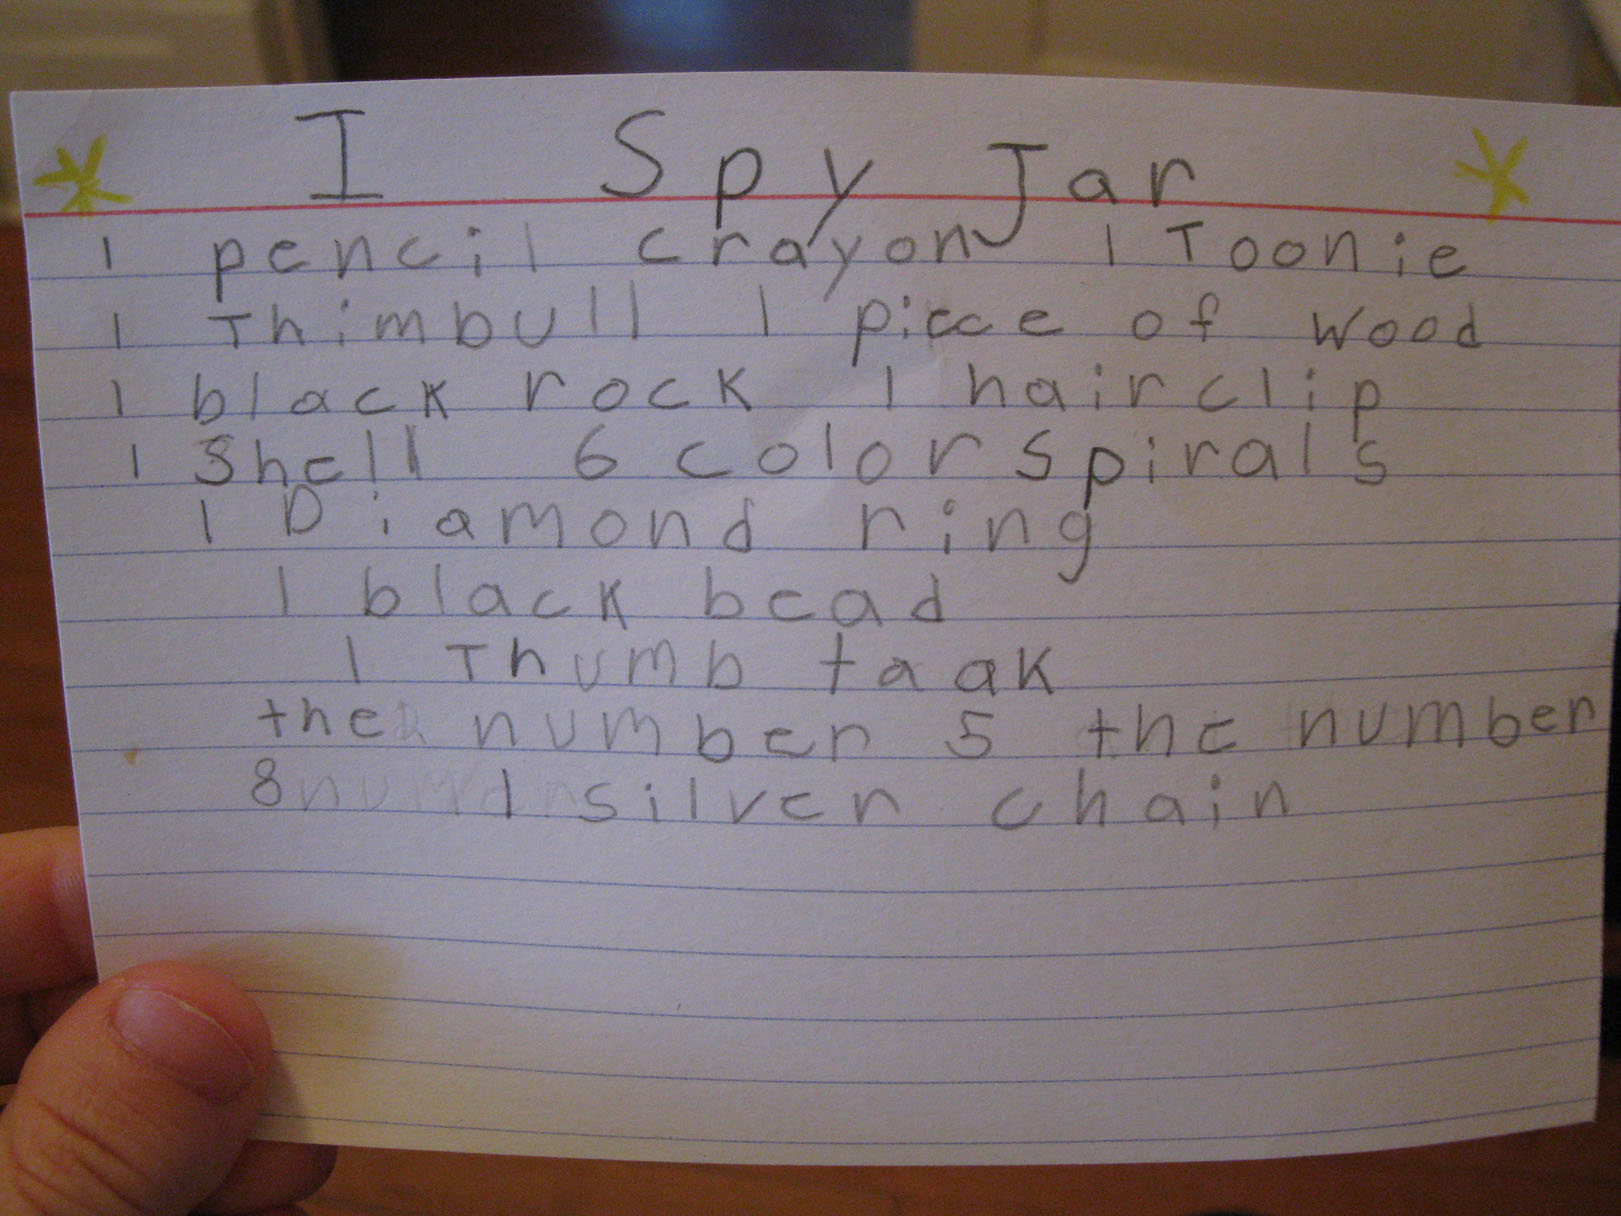 I Spy Jar
1 pencil crayon 1 Toonie
1 Thimbull 1 piece of wood
1 black rock 1 hairclip
1 Shell 6 color spirals
1 Diamond ring
1 black bead
1 Thumb taak
the number 5 the number
8 1 silver chain